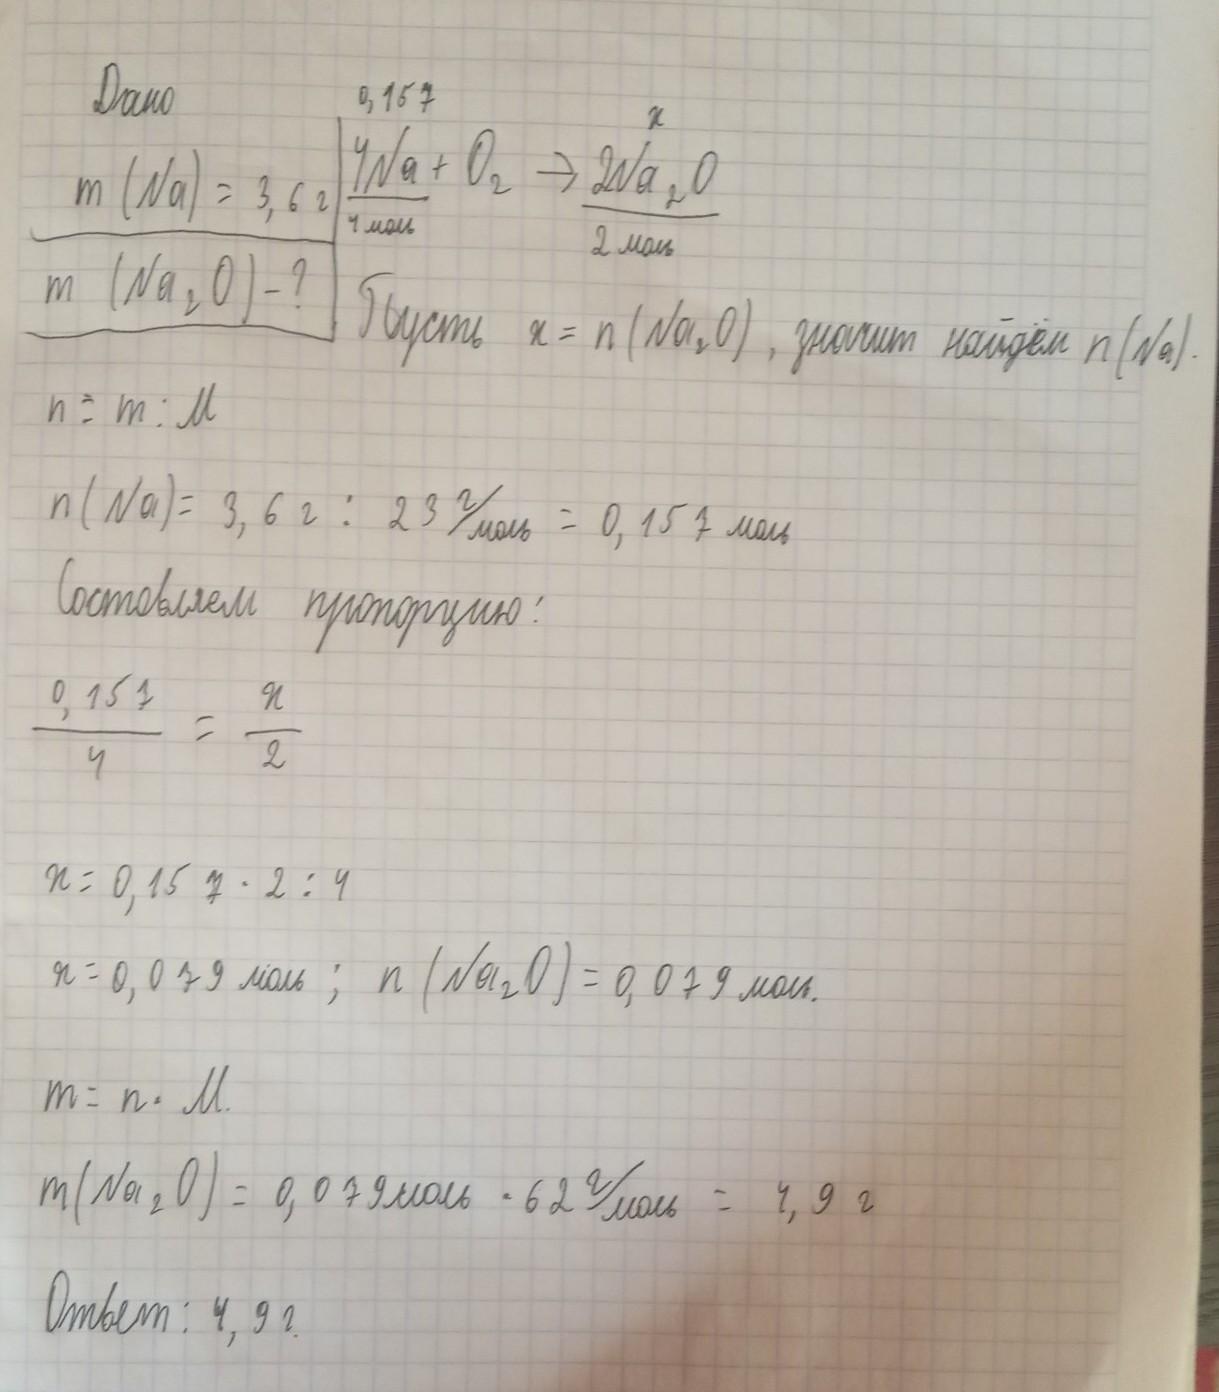 Дано
m (Na) = 3,6 г
m (Na₂O) - ?
0,157 x
4Na + O₂ → 2Na₂O
4 моль 2 моль
Пусть x = n (Na₂O), значит найдём n (Na).
n = m : M
n (Na) = 3,6 г : 23 г/моль = 0,157 моль
Составляем пропорцию:
0,157 / 4 = x / 2
x = 0,157 · 2 : 4
x = 0,079 моль ; n (Na₂O) = 0,079 моль.
m = n · M.
m (Na₂O) = 0,079 моль · 62 г/моль = 4,9 г
Ответ: 4,9 г.